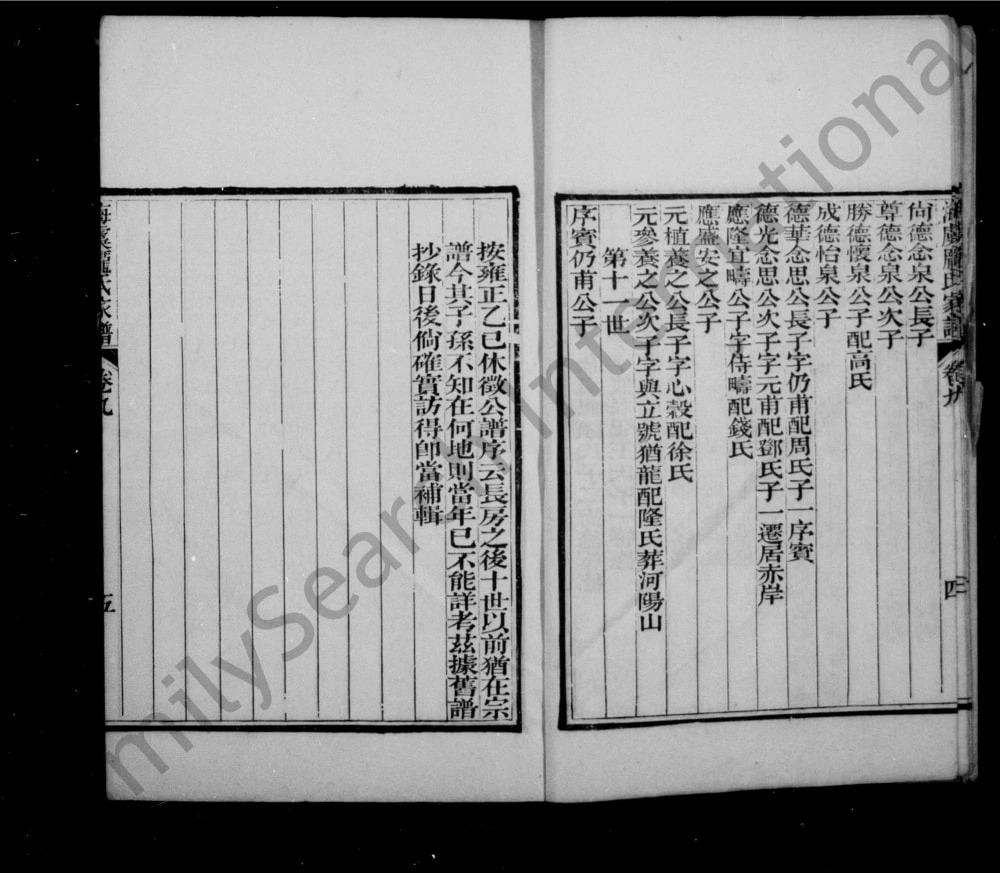 尙德念泉公長子
尊德念泉公次子
勝德懷泉公子配高氏
成德怡泉公子
德華念思公長子字仍甫配周氏子一序賓
德光念思公次子字元甫配鄧氏子一遷居赤岸
應隆宜疇公子字侍疇配錢氏
應盛安之公子
元植養之公長子字心穀配徐氏
元參養之公次子字與立號猶龍配隆氏葬河陽山
第十一世
序賓仍甫公子
按雍正乙巳休徵公譜序云長房之後十世以前猶在宗
譜今其子孫不知在何地則當年已不能詳考茲據舊譜
抄錄日後倘確實訪得卽當補輯
氏家譜
卷之九
五